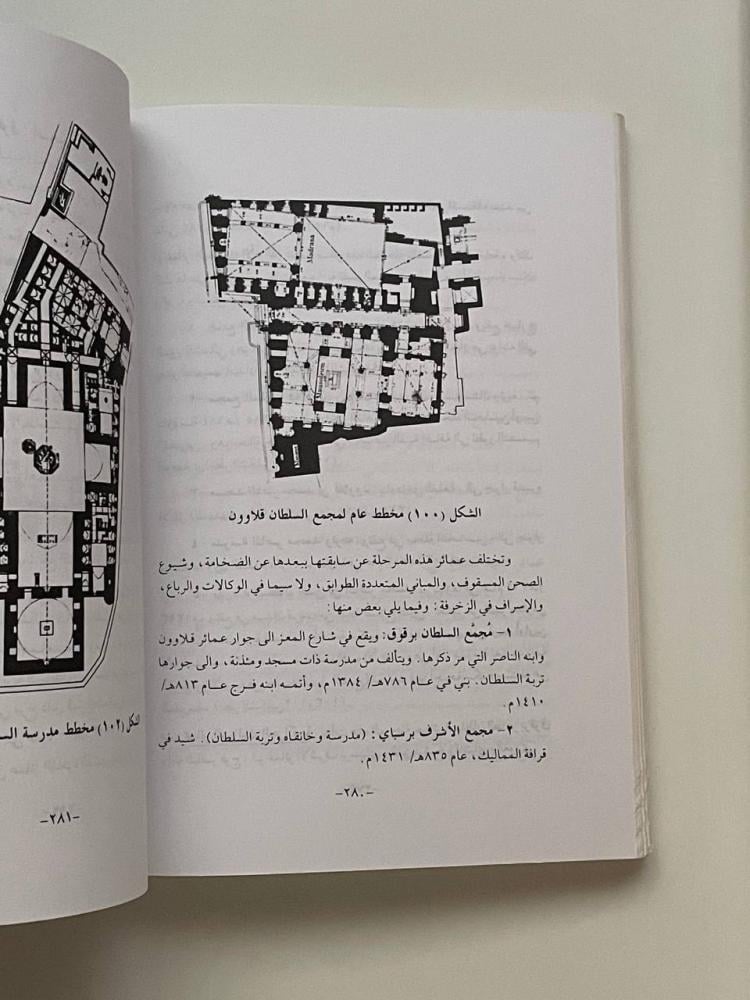 Madrasa
Mausoleum
Minaret
الشكل (١٠٠) مخطط عام لمجمع السلطان قلاوون
وتختلف عمائر هذه المرحلة عن سابقتها ببعدها عن الضخامة، وشيوع
الصحن المسقوف، والمباني المتعددة الطوابق، ولا سيما في الوكالات والرباع،
والإسراف في الزخرفة: وفيما يلي بعض منها:
١- مُجمَّع السلطان برقوق: ويقع في شارع المعز الى جوار عمائر قلاوون
وابنه الناصر التي مر ذكرها. ويتألف من مدرسة ذات مسجد ومئذنة، والى جوارها
تربة السلطان. بني في عام ٧٨٦هـ/ ١٣٨٤م، وأتمه ابنه فرج عام ٨١٣هـ/
١٤١٠م.
٢- مجمع الأشرف برسباي: (مدرسة وخانقاه وتربة السلطان). شيد في
قرافة المماليك، عام ٨٣٥هـ/ ١٤٣١م.
-٢٨٠-
الشكل (١٠٢) مخطط مدرسة
-٢٨١-